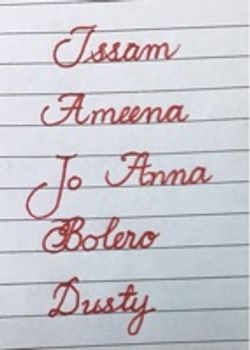 Issam
Ameena
Jo Anna
Bolero
Dusty